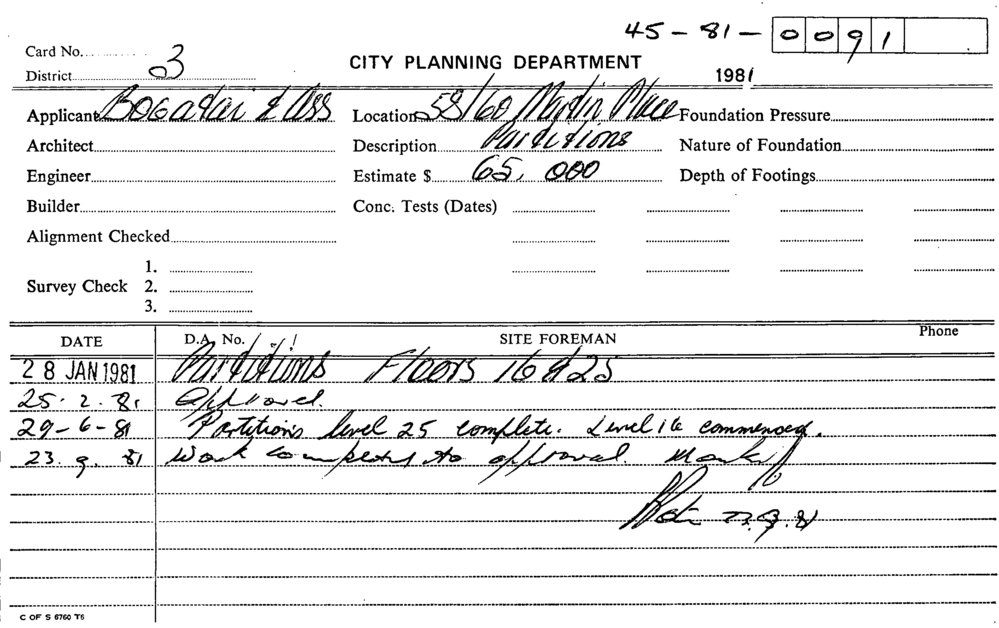 45 - 81 - 0091
Card No. 3
District
CITY PLANNING DEPARTMENT
1981
Applicant Bogadai & Ass Location 58/60 Martin Place Foundation Pressure
Architect Description Partitions Nature of Foundation
Engineer Estimate $ 65,000 Depth of Footings
Builder Conc. Tests (Dates)
Alignment Checked
1.
Survey Check 2.
3.
DATE D.A. No. SITE FOREMAN Phone
28 JAN 1981 Partitions Floors 16 & 25
25. 2. 81 Approved.
29-6-81 Partitions level 25 complete. Level 16 commenced.
23. 9. 81 Work completed to approval.
.9.81
C OF S 6760 T6